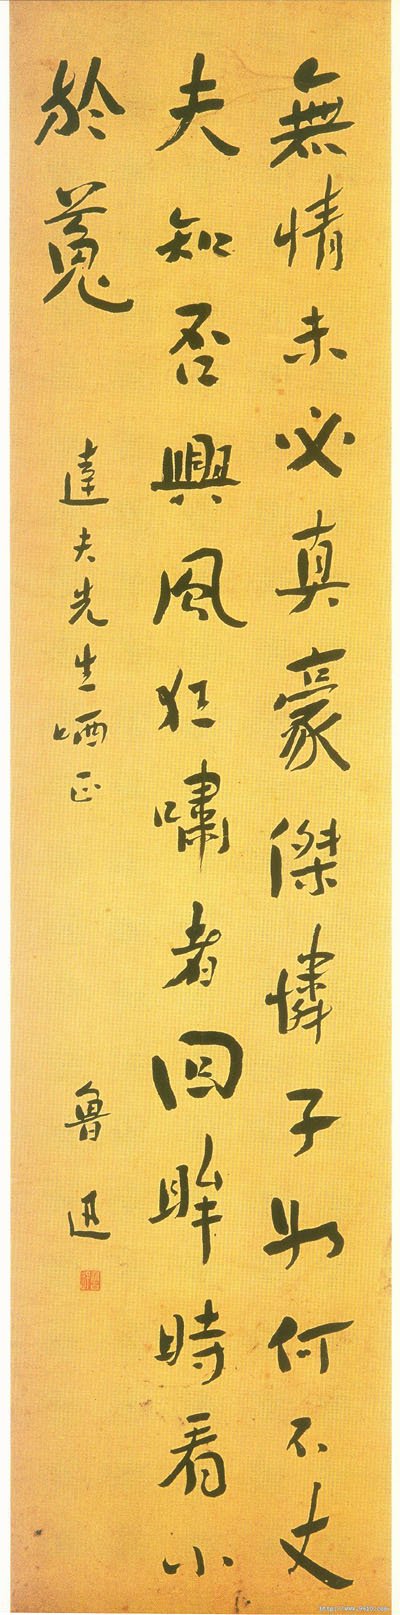 無情未必真豪傑憐子如何不丈
夫知否興風狂嘯者回眸時看小
於菟
達夫先生哂正
魯迅